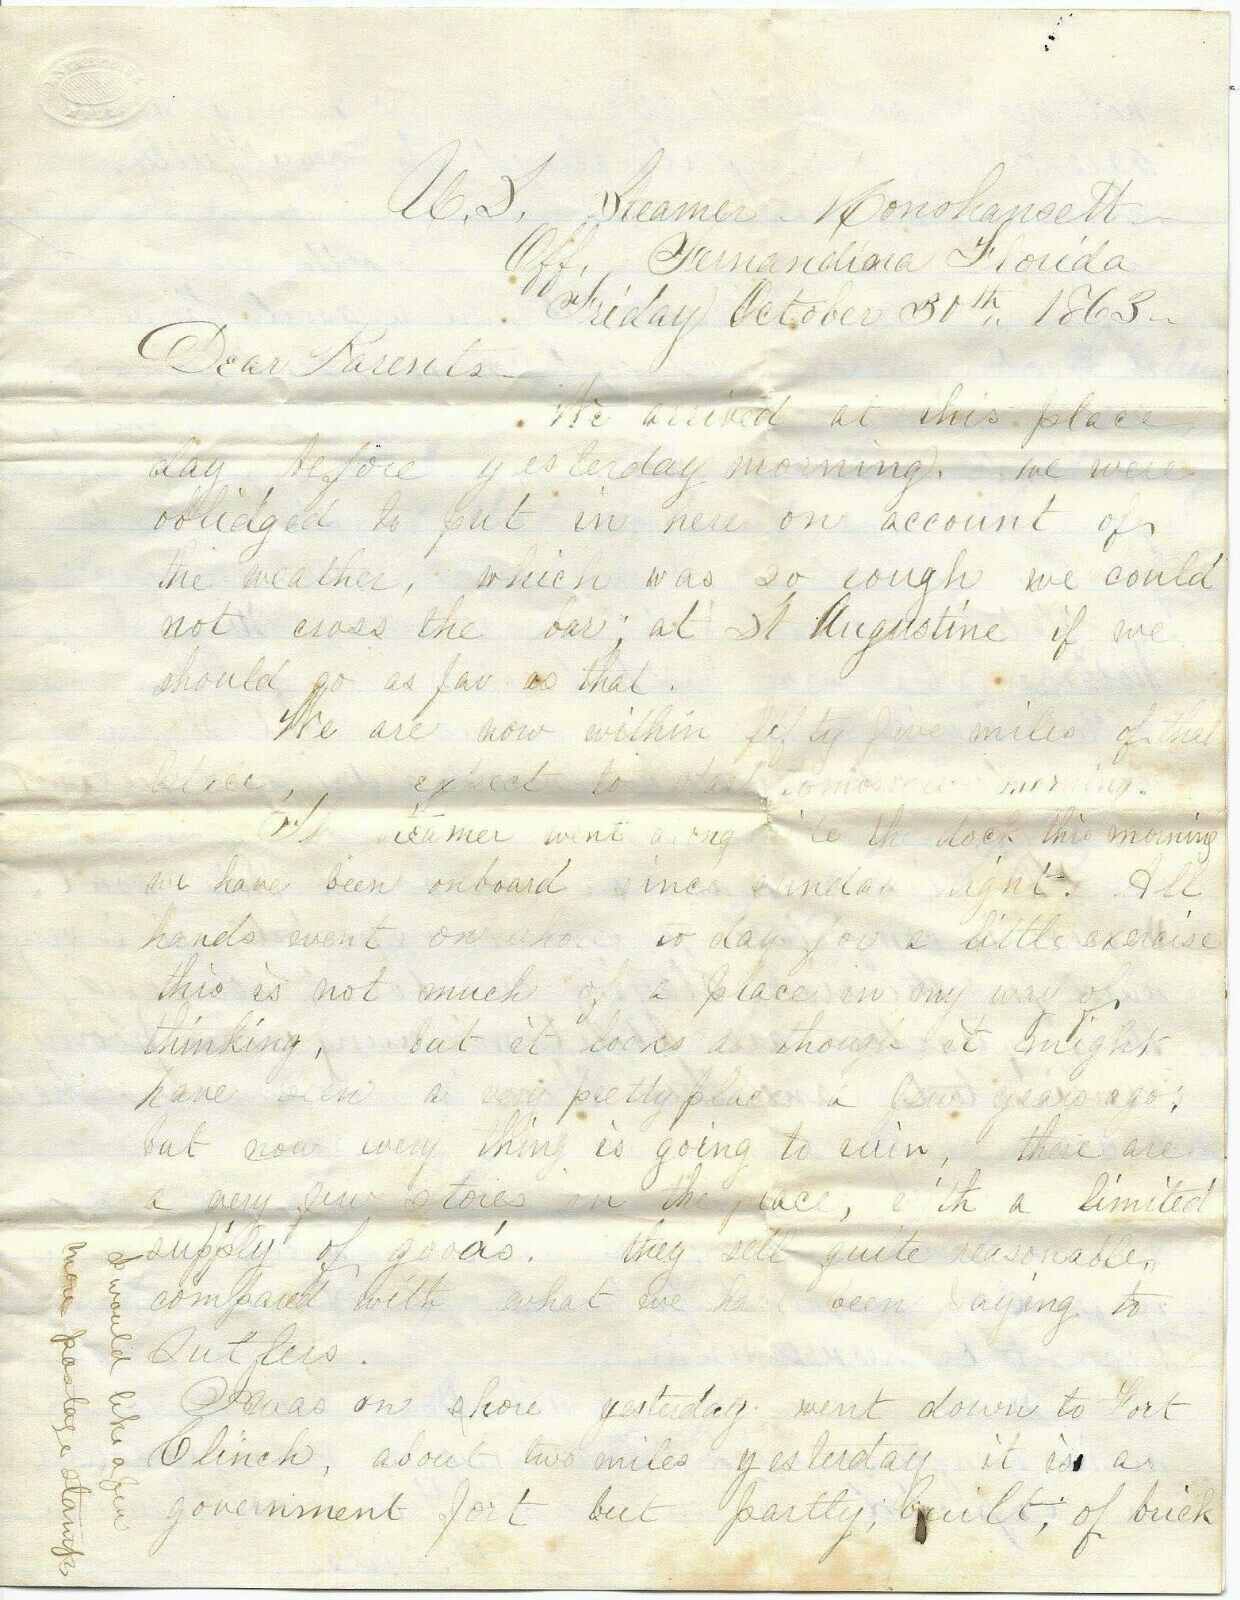 U.S. Steamer Monohansett
Off, Fernandina Florida
Friday October 30th 1863
Dear Parents
We arrived at this place,
day before yesterday morning. we were
oblidged to put in here on account of
the weather, which was so rough we could
not cross the bar; at St Augustine if we
should go as far as that.
We are now within fifty five miles of that
place, expect to start tomorrow morning.
The steamer went along side the dock this morning
we have been onboard since sunday night. All
hands went on shore to day for a little exercise
this is not much of a place in my way of
thinking, but it looks as though it might
have been a very pretty place a few years ago;
but now every thing is going to ruin, there are
a very few stores in the place, with a limited
supply of goods. they sell quite reasonable,
compared with what we have been paying to
Sutlers.
I was on shore yesterday went down to Fort
Clinch, about two miles yesterday, it is a
government fort but partly, built, of brick
I would like a few
more postage stamps,